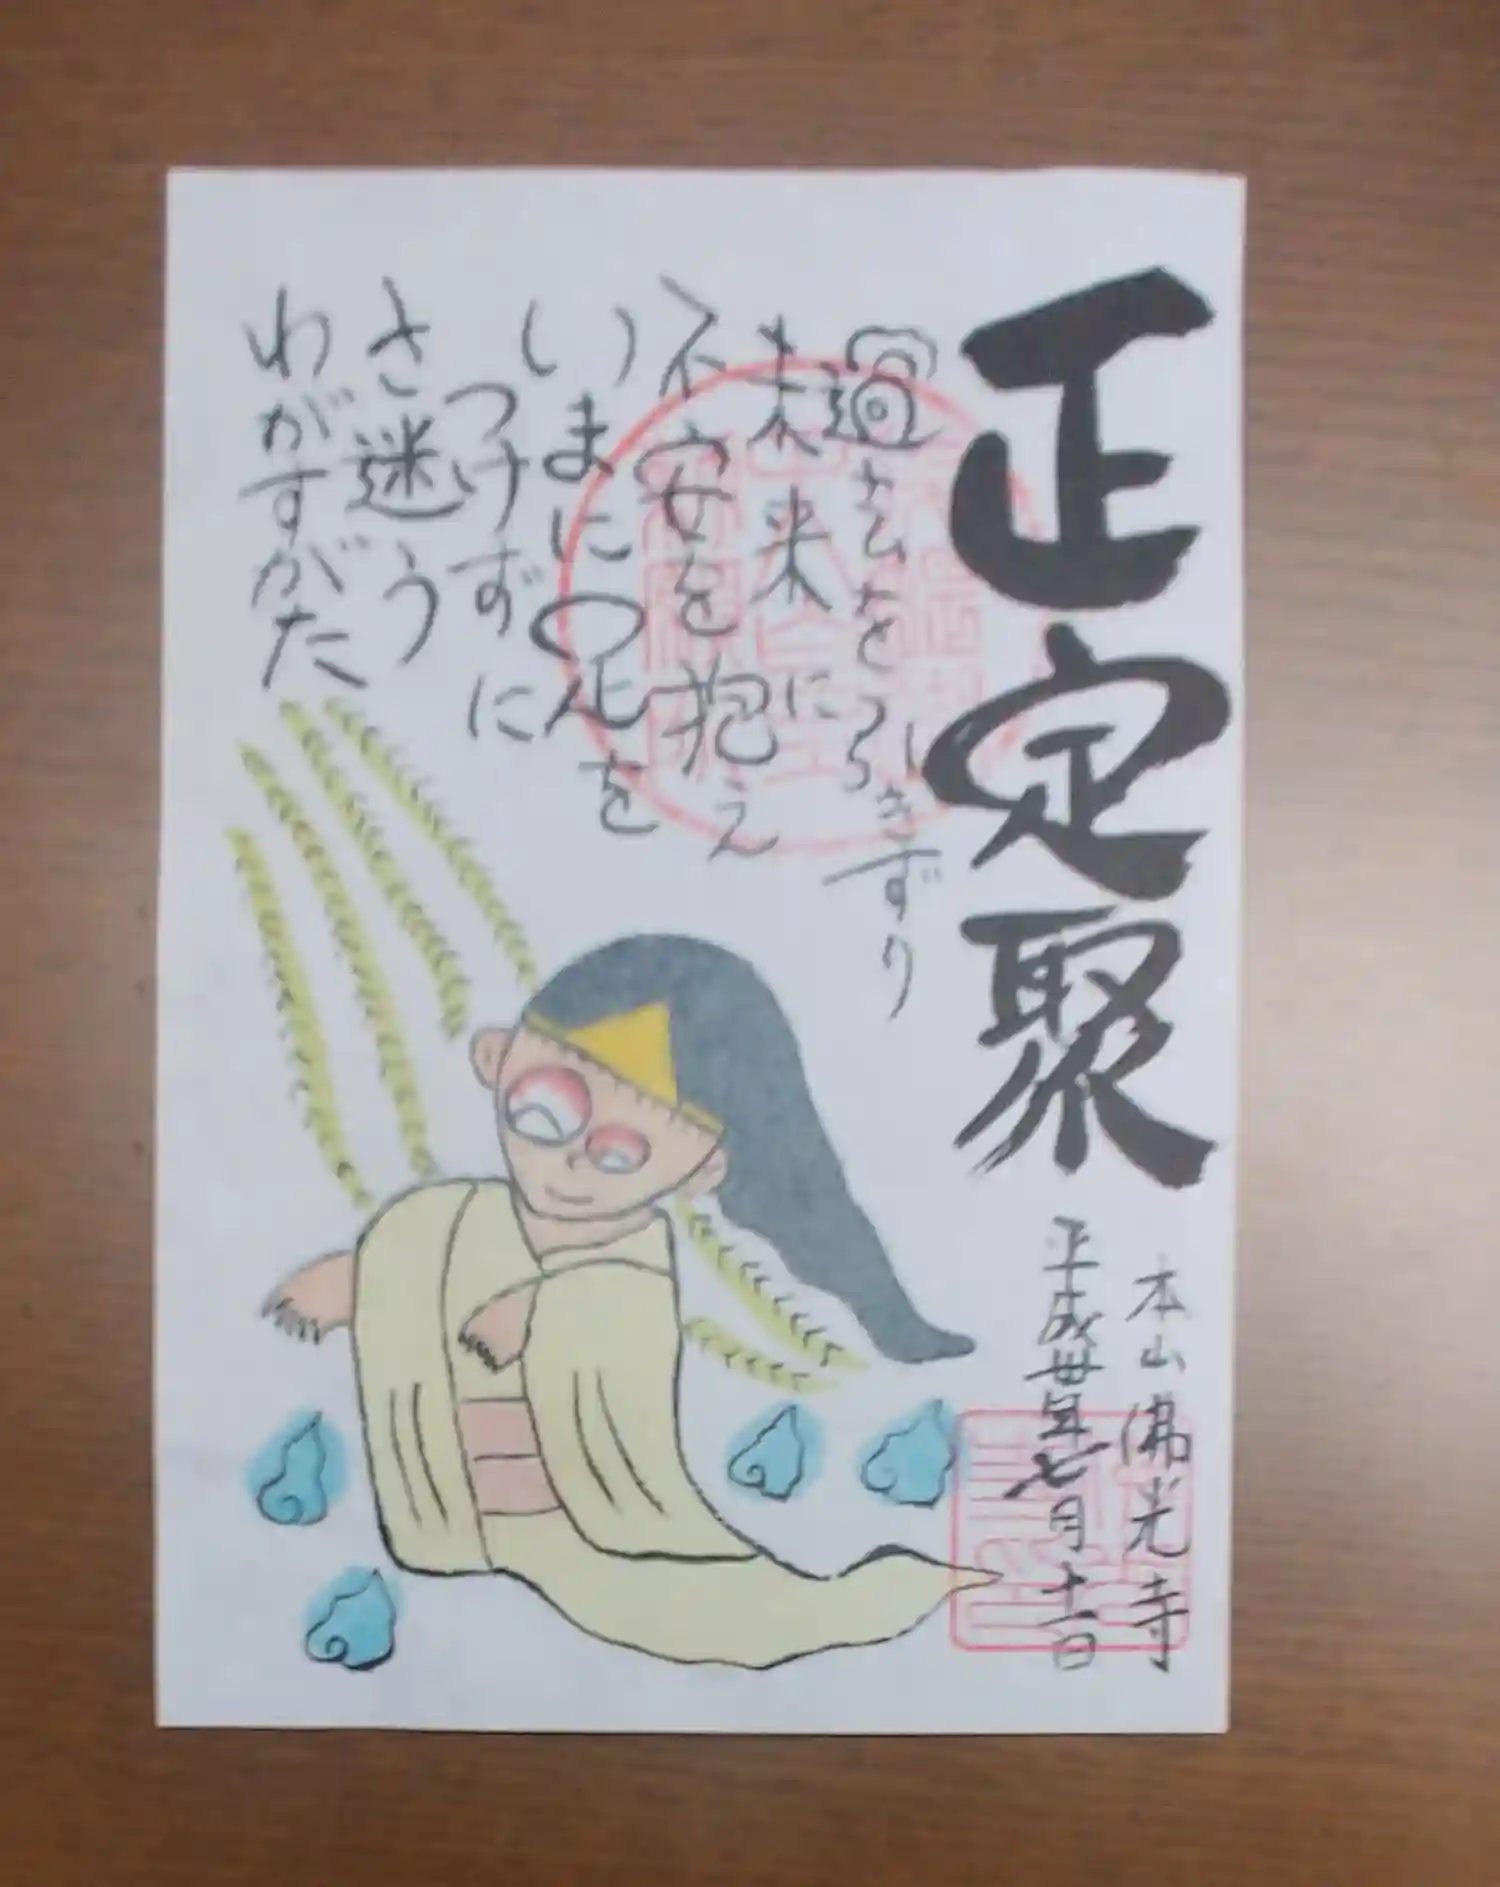 正定聚
過去をひきずり
未来に
不安を抱え
いまに足を
つけずに
さ迷う
わがすがた
本山佛光寺
平成卅年七月十一日